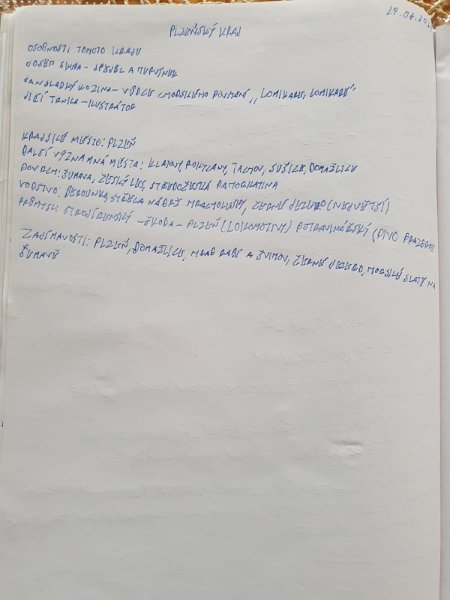 29.04.20
PLZEŇSKÝ KRAJ
OSOBNOSTI TOHOTO KRAJE
JOSEF SKUPA - SPEJBL A HURVÍNEK
JAN SLADKÝ KOZINA - VŮDCE CHODSKÉHO POVSTÁNÍ ,, LOMIKARE, LOMIKARE"
JIŘÍ TRNKA - ILUSTRÁTOR
KRAJSKÉ MĚSTO: PLZEŇ
DALŠÍ VÝZNAMNÁ MĚSTA: KLATOVY, ROKYCANY, TACHOV, SUŠICE, DOMAŽLICE
POVRCH: ŠUMAVA, ČESKÝ LES, STŘEDOČESKÁ PAHORKATINA
VODSTVO: BEROUNKA, STŘELA NÁDRŽ HRACHOLUSKY, ČERNÉ JEZERO (NEJVĚTŠÍ)
PRŮMYSL: STROJÍRENSKÝ - ŠKODA - PLZEŇ (LOKOMOTIVY) POTRAVINÁŘSKÝ (PIVO PRAZDROJ
ZAJÍMAVOSTI: PLZEŇ, DOMAŽLICE, HRAD RABÍ A ŠVIHOV, ČERNÉ JEZERO, MODRAVSKÉ SLATĚ NA
ŠUMAVĚ